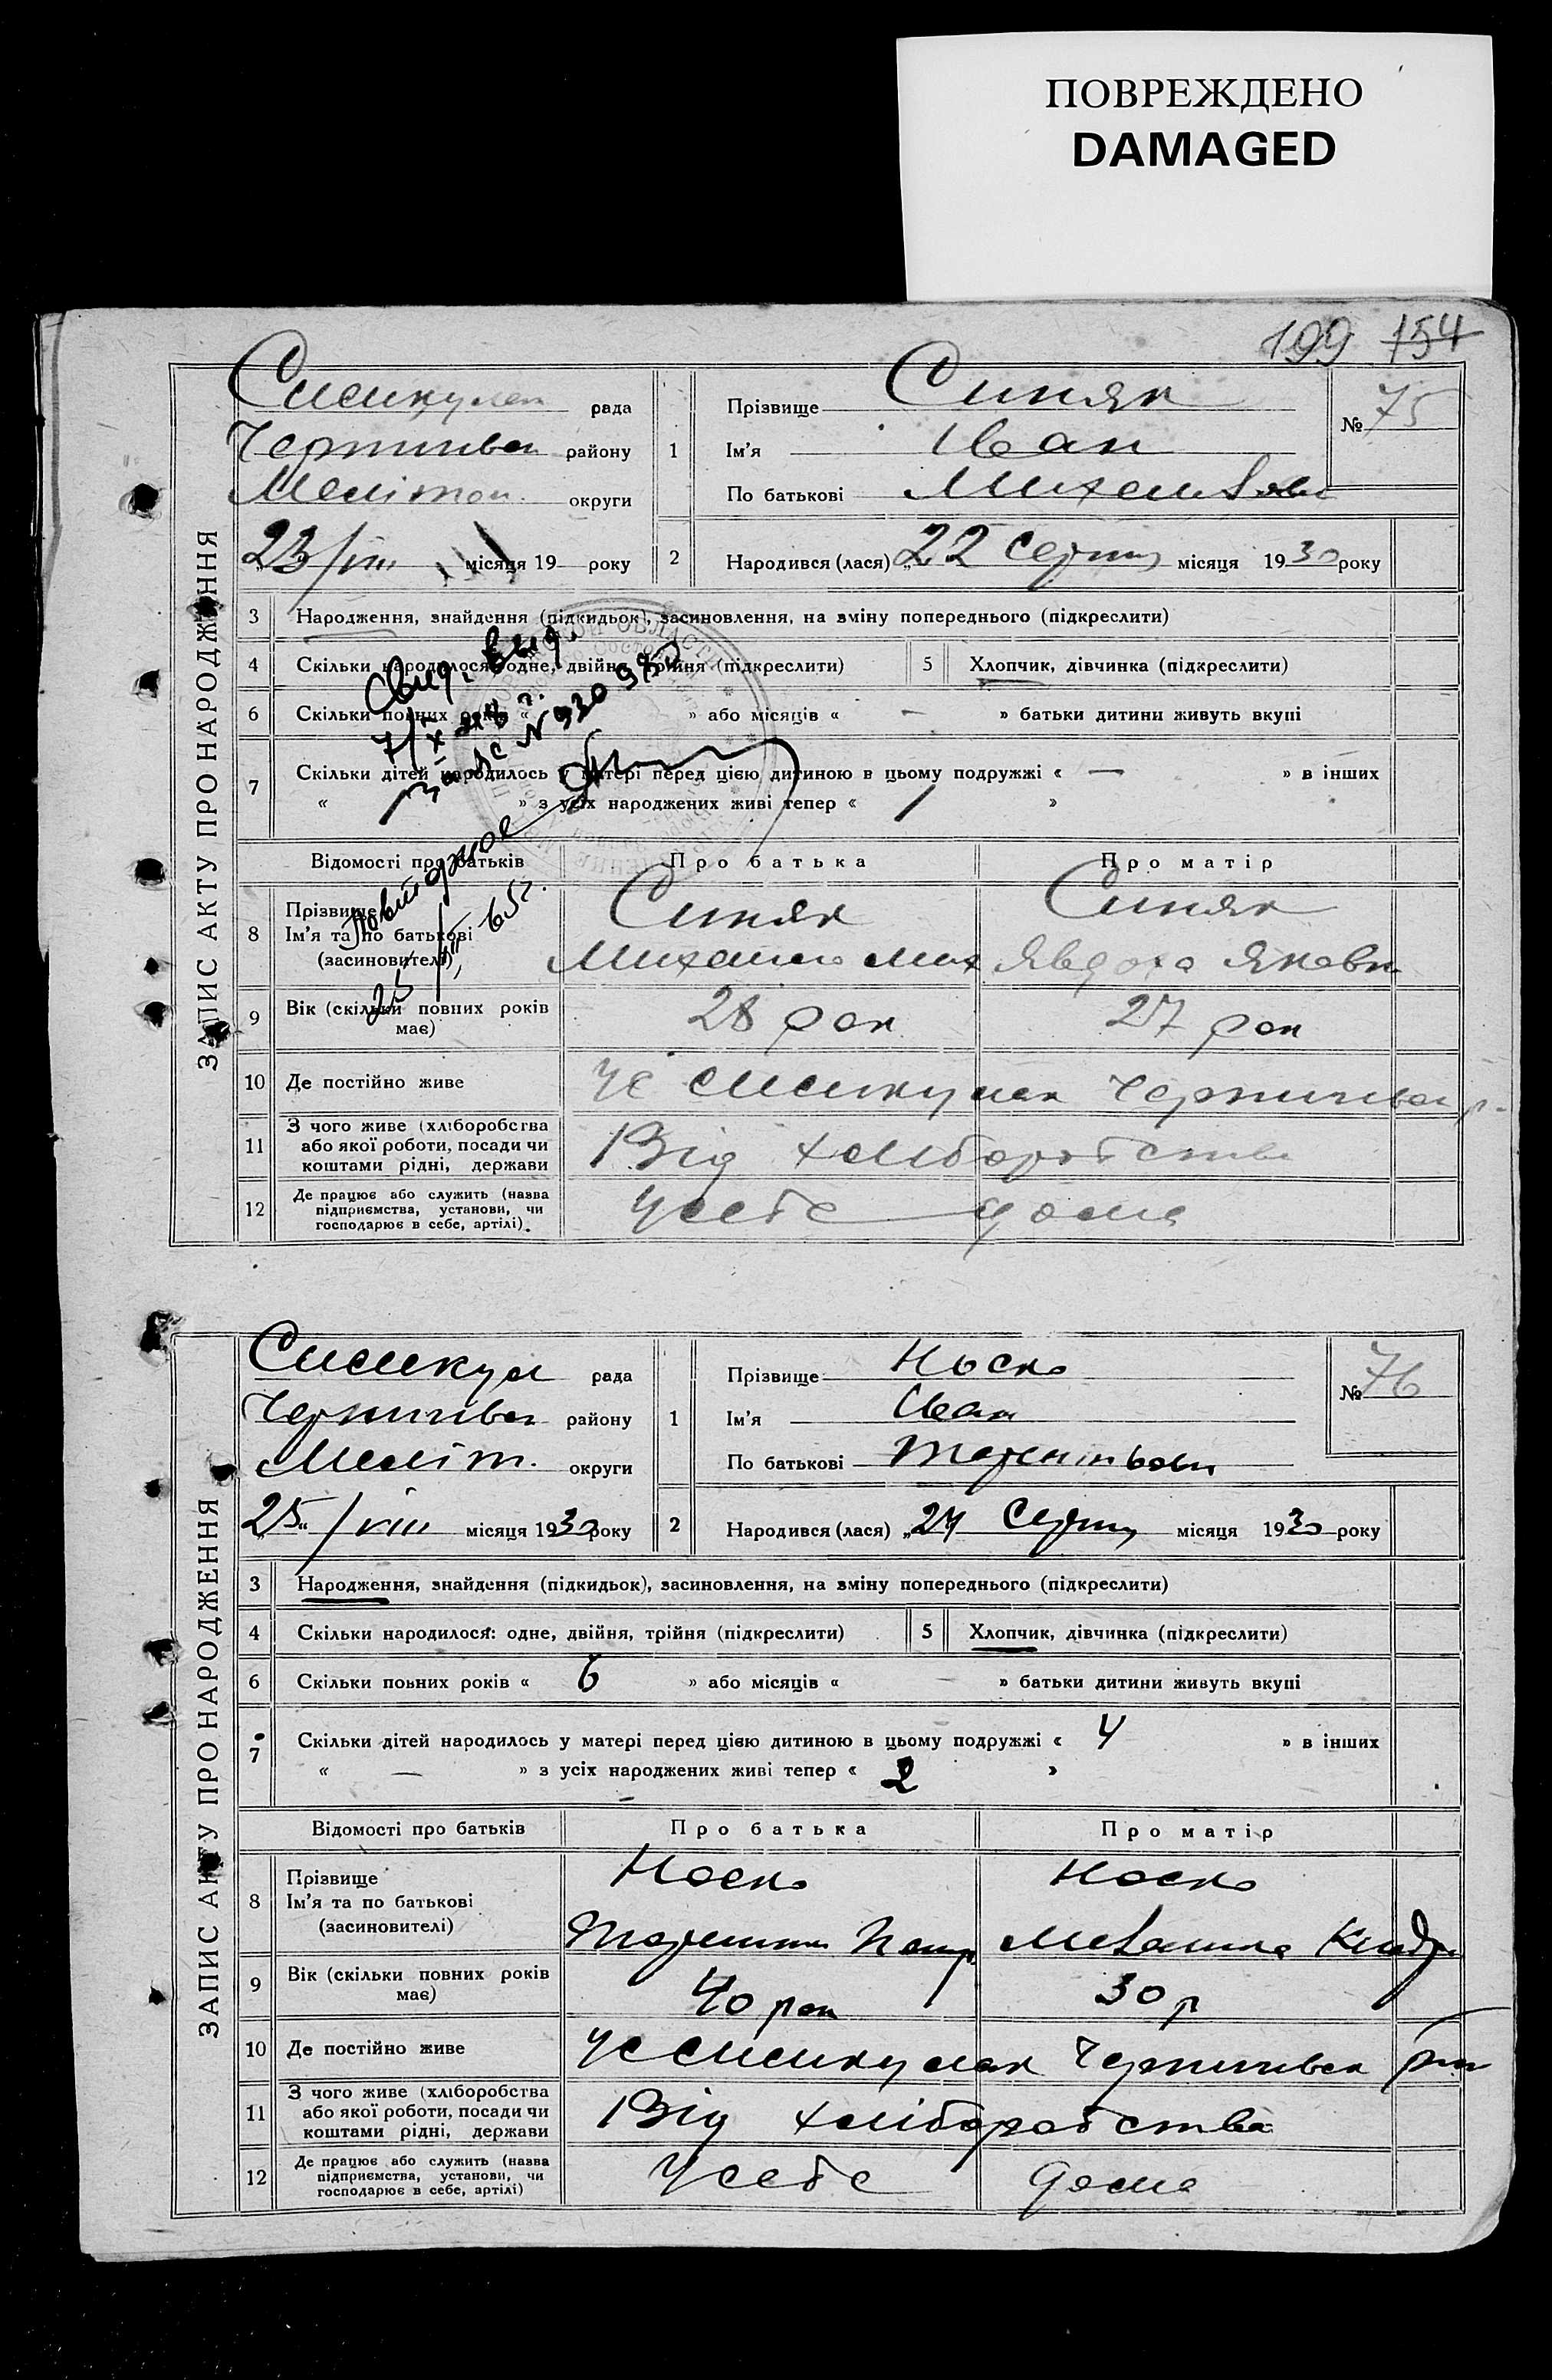 ПОВРЕЖДЕНО
DAMAGED
199 154
ЗАПИС АКТУ ПРО НАРОДЖЕННЯ
рада
району
Мелітоп. округи
23/VIII місяця 19 року
1 Прізвище Синяк
Ім'я Іван
По батькові
№ 75
2 Народився (лася) „22 Серпня місяця 1930 року
3 Народження, знайдення (підкидьок), засиновлення, на зміну попереднього (підкреслити)
4 Скільки народилося: одне, двійня, трійня (підкреслити) 5 Хлопчик, дівчинка (підкреслити)
6 Скільки повних років « » або місяців « — » батьки дитини живуть вкупі
7 Скільки дітей народилось у матері перед цією дитиною в цьому подружжі « — » в інших
« » з усіх народжених живі тепер « »
Свид. выд.
№ 930980
Повторное
65 г.
Відомості про батьків Про батька Про матір
8 Прізвище Синяк Синяк
Ім'я та по батькові Михайло Мих Явдоха Яковл
(засиновителі)
9 Вік (скільки повних років має) 28 рок 27 рок
10 Де постійно живе
11 З чого живе (хліборобства або якої роботи, посади чи коштами рідні, держави Від хліборобства
12 Де працює або служить (назва підприємства, установи, чи господарює в себе, артілі). У себе дома
ЗАПИС АКТУ ПРО НАРОДЖЕННЯ
рада
району
Меліт. округи
„25“/VIII місяця 1930 року
1 Прізвище Носко
Ім'я Іван
По батькові
№ 76
2 Народився (лася) „24 Серпня місяця 1930 року
3 Народження, знайдення (підкидьок), засиновлення, на зміну попереднього (підкреслити)
4 Скільки народилося: одне, двійня, трійня (підкреслити) 5 Хлопчик, дівчинка (підкреслити)
6 Скільки повних років « 6 » або місяців « — » батьки дитини живуть вкупі
7 Скільки дітей народилось у матері перед цією дитиною в цьому подружжі « 4 » в інших
« — » з усіх народжених живі тепер « 2 »
Відомості про батьків Про батька Про матір
8 Прізвище Носко Носко
Ім'я та по батькові
(засиновителі)
9 Вік (скільки повних років має) 40 рок 30 р
10 Де постійно живе
11 З чого живе (хліборобства або якої роботи, посади чи коштами рідні, держави Від хліборобства
12 Де працює або служить (назва підприємства, установи, чи господарює в себе, артілі) У себе дома